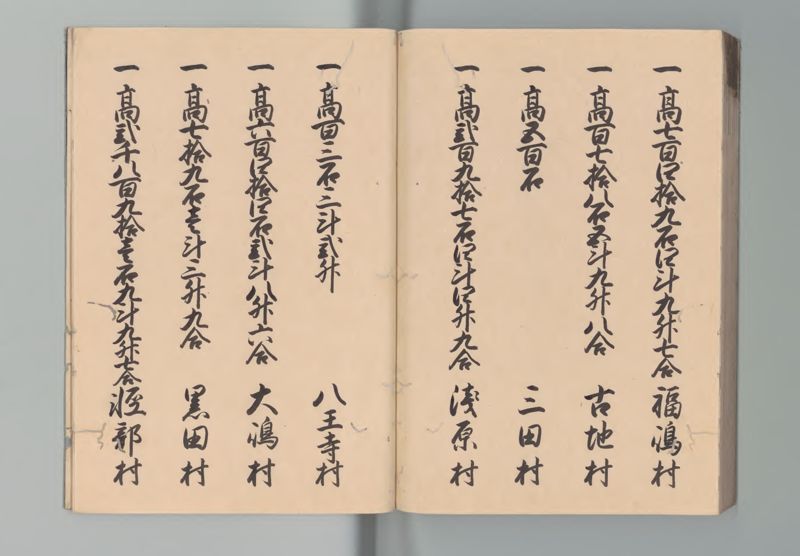 一高七百四拾九石四斗九升七合 福嶋村
一高百七拾八石五斗九升八合 古地村
一高五百石 三田村
一高弐百九拾七石四斗四升九合 淺原村
一高百三石三斗弐升 八王寺村
一高六百四拾四石弐斗八升六合 大嶋村
一高七拾九石壱斗三升九合 黒田村
一高弐千八百九拾壱石九斗九升七合 部村